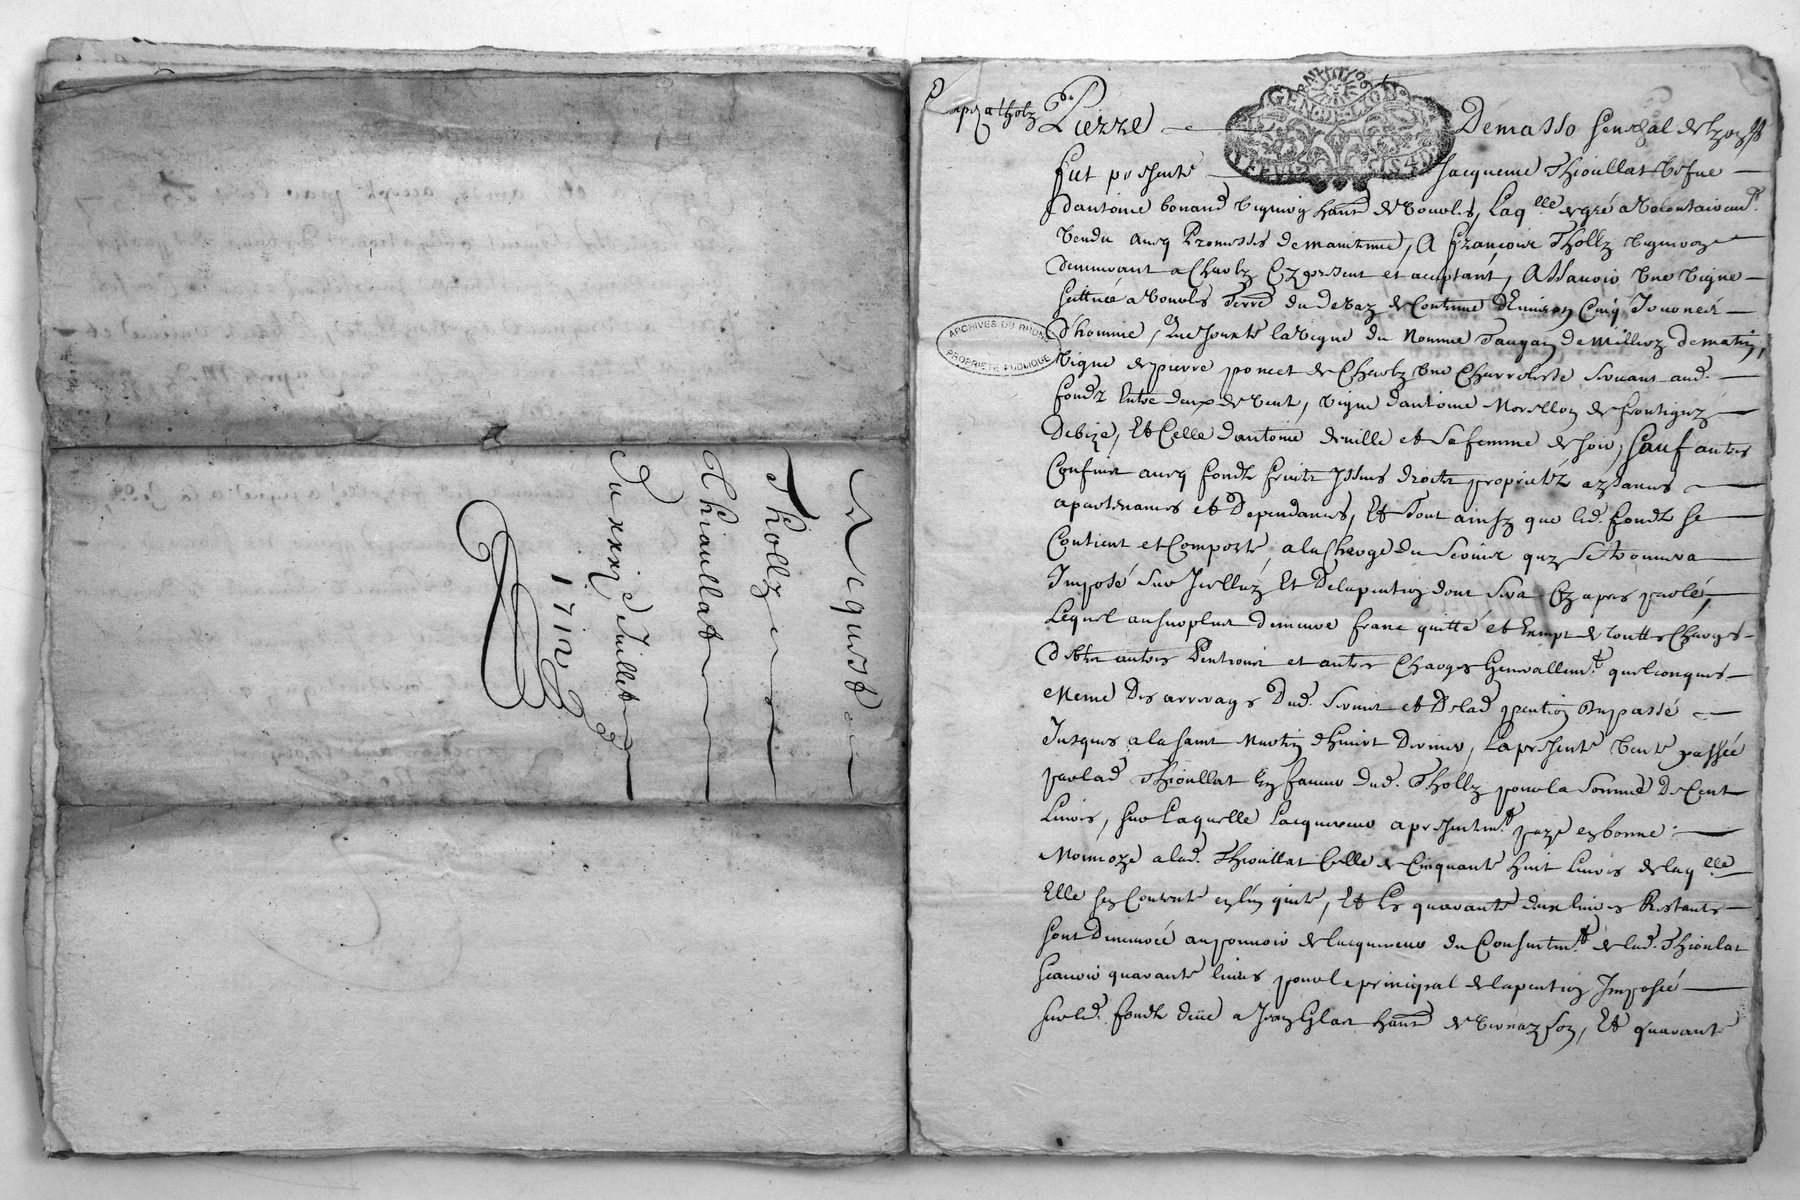 Acquist
Tholly
Thioullat
Du xxix Juillet
1712
GEN. D. LYON
ARCHIVES DU RHONE
PROPRIETE PUBLIQUE
Pierre Demasso Senechal de Lyon
fut presente Jacqueme Thioullat vefue
dantoine bonand vigneron hant de , Laqlle de gré a volontairemt
vendu aueq Promesses de maintenue, A francois Tholly vigneron
demeurant a Charly Cy present et aceptant, Assauoir Vne Vigne
scittuée a Terre du de Contenue d'Enuiron Cinq Journeés
d'homme, la vigne du Nomme de Millery de matin,
Vigne de pierre poncet de Charly vne
fondz Entre deux de vent, vigne dantoine Morellon de
de bize, Et Celle dantoine deuille et sa femme de soir, sauf autres
Confins aueq fondz fruits Issues droits proprietéz aysances
apartenances et Dependances, Et Tout ainsy que led. fondz se
Contient et Comporte a la Charge du Seruis quy se trouuera
Imposé sur Icelluy Et De la pention dont sera Cy apres parlé,
Lequel au surplus demeure franc quitte et Exempt de touttes Charges
debtes autres Pentions et autres Charges Generallemt quelconques
Meme des arrerages Dud. Seruis et De lad pention Du passé
Jusques a la saint Martin d'hiuert Dernier, La presente vente passée
par lad Thioullat En faueur dud. Tholly pour la somme De Cent
Liures, sur Laquelle Lacquereur a presentemt payé en bonne
Monnoye a lad. Thioullat Celle de Cinquante huit Liures de laqlle
Elle sen Contente en len quite, Et Les quarante deux liures Restants
sont Demeurée au pouuoir de lacquereur du Consentemt de lad. Thioulat
scauoir quarante liures pour le principal de la pention Imposée
sur led. fondz deüe a hant de , Et quarante